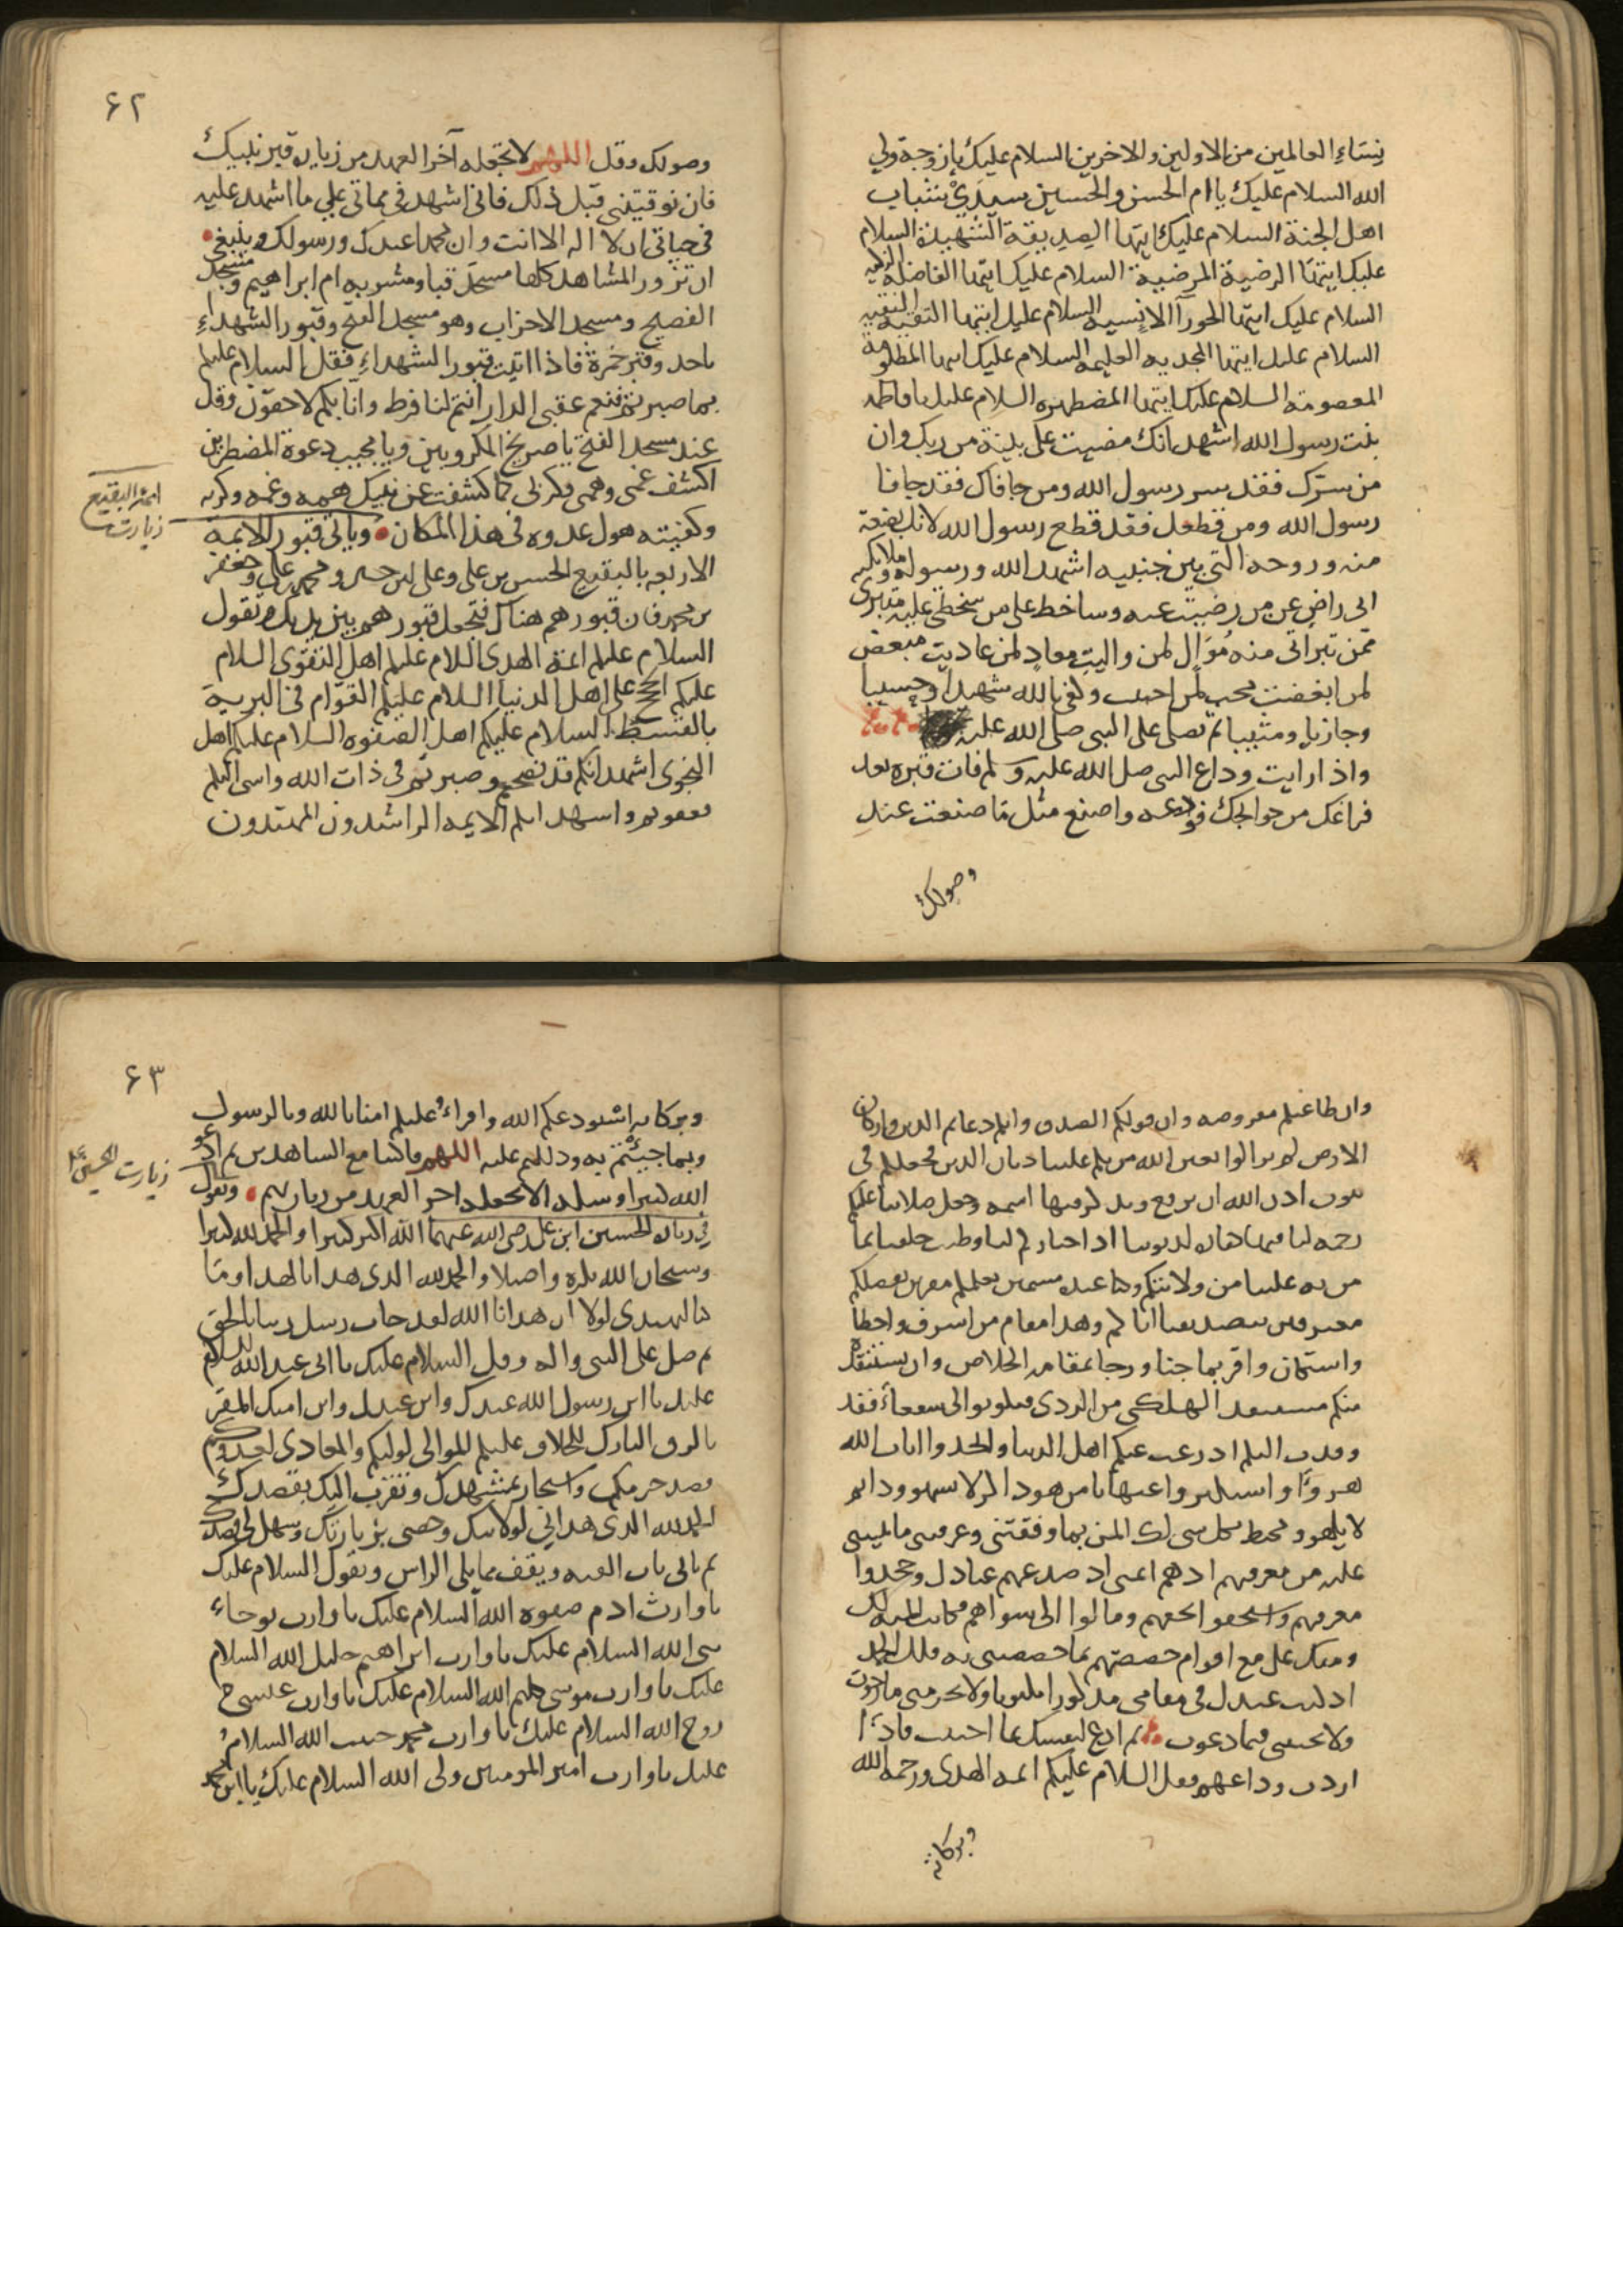 نساء العالمين من الاولين والاخرين السلام عليك يا زوجة ولي
الله السلام عليك يا ام الحسن والحسين سيدي شباب
اهل الجنة السلام عليك ايتها الصديقة الشهيدة السلام
عليك ايتها الرضية المرضية السلام عليك ايتها الفاضلة الزكية
السلام عليك ايتها الحورآ الانسيه السلام عليك ايتها التقية النقيه
السلام عليك ايتها المحدثه العليمه السلام عليك ايتها المظلومة
المعصومة السلام عليك ايتها المضطهده السلام عليك يا فاطمه
بنت رسول الله اشهد انك مضيت على بينة من ربك وان
من سرّك فقد سر رسول الله ومن جافاك فقد جافا
رسول الله ومن قطعك فقد قطع رسول الله لانك بضعة
منه وروحه التي بين جنبيه اشهد الله ورسوله وملائكته
اني راضٍ عن من رضيت عنه وساخط على من سخطتي عليه متبرئ
ممن تبراتي منه مُوَالٍ لمن واليتِ معادٍ لمن عاديت مبغض
لمن ابغضت محب لمن احببت وكفى بالله شهيدا وحسيبا
وجازيا ومثيبا ثم تصلى على النبي صلى الله عليه
واذا رايت وداع النبي صلى الله عليه وسلم فات قبره بعد
فراغك من حوايجك فودعه واصنع مثل ما صنعت عند
وصولك
۶۲
وصولك وقل اللهم لا تجعله آخر العهد من زيارة قبر نبيك
فان توفيتني قبل ذلك فاني اشهد في مماتي على ما اشهد عليه
في حياتي ان لا اله الا انت وان محمدا عبدك ورسولك وينبغي
ان تزور المشاهد كلها مسجد قبا ومشربه ام ابراهيم ومسجد
الفضيخ ومسجد الاحزاب وهو مسجد الفتح وقبور الشهداءِ
باحد وقبر حمزة فاذا اتيت قبور الشهداءِ فقل السلام عليكم
بما صبرتم فنعم عقبى الدار انتم لنا فرط وانا بكم لاحقون وقل
عند مسجد الفتح يا صريخ المكروبين ويا مجيب دعوة المضطرين
اكشف غمي وهمي وكربي كما كشفت عن نبيك همه وغمه وكربه
وكفيته هول عدوه في هذا المكان وياتي قبور الائمة
الاربعه بالبقيع الحسن بن علي وعلي بن حسين ومحمد بن علي وجعفر
بن محمد فان قبورهم هناك فتجعل قبورهم بين يديك وتقول
السلام عليكم ائمة الهدى السلام عليكم اهل التقوى السلام
عليكم الحجج على اهل الدنيا السلام عليكم القوّام في البرية
بالقسط السلام عليكم اهل الصفوه السلام عليكم اهل
النجوى اشهد انكم قد نصحتم وصبرتم في ذات الله واسي اليكم
فعفوتم واشهد انكم الايمه الراشدون المهتدون
ائمة البقيع
زيارت
وان طاعتكم مفروضه وان قولكم الصدق وانكم دعايم الدين واركان
الارض لم تزالوا بعين الله من بكم علينا ديان الدين فجعلكم في
بيوت اذن الله ان ترفع ويذكر فيها اسمه وجعل صلاتنا عليكم
رحمه لنا وكفارة لذنوبنا اذ اختاركم لنا وطيب خلقنا بما
من به علينا من ولايتكم وكنا عنده مسمين بعلمكم مقرين بفضلكم
معترفين بتصديقنا اياكم وهذا مقام من اسرف واخطأ
واستكان واقر بما جنا ورجا بمقامه الخلاص وان يستنقذه
منكم مستنقذ الهلكى من الردى فكونوا لي شفعاء فقد
وفدت اليكم اذ رغب عنكم اهل الدنيا واتخذوا ايات الله
هزوًا واستكبروا عنها يا من هو ذاكر لا يسهو ودايم
لا يلهو ومحيط بكل شي لك المن بما وفقتني وعرفتني ما ثبتني
عليه من معرفتهم اذ هم اعني اذ صد عنهم عبادك وجحدوا
معرفتهم واستخفوا بحقهم ومالوا الى سواهم فكانت المنه لك
ومنك علي مع اقوام خصصتهم بما خصصتني به فلك الحمد
اذ كنت عندك في مقامي مذكورا مكتوبا ولا تحرمني ما رجوت
ولا تخيبني فيما دعوت ثم ادع لنفسك بما احببت فاذا
اردت وداعهم فقل السلام عليكم ائمه الهدى ورحمه الله
وبركاته
۶۳
وبركاته استودعكم الله واقراءُ عليكم امنا بالله وبالرسول
وبما جيئتم به ودللتم عليه اللهم فاكتبنا مع الشاهدين ثم ادعو
الله كثيرا وسله الا يجعله اخر العهد من زيارتهم وتقول
في زيارة الحسين ابن علي رضي الله عنهما الله اكبر كبيرا والحمد لله كثيرا
وسبحان الله بكرة واصيلا والحمد لله الذي هدانا لهذا وما
كنا لنهتدي لولا ان هدانا الله لقد جات رسل ربنا بالحق
ثم صل على النبي واله وقل السلام عليك يا ابي عبد الله السلام
عليك يا ابن رسول الله عبدك وابن عبدك وابن امتك المقر
بالرق التارك للخلاف عليكم الموالي لوليكم والمعادي لعدوكم
قصد حرمكم واستجار بمشهدك وتقرب اليك بقصدك
الحمد لله الذي هداني لولايتك وخصني بزيارتك وسهل لي قصدك
ثم ياتي باب القبه ويقف مما يلي الراس وتقول السلام عليك
يا وارث ادم صفوه الله السلام عليك يا وارث نوحاء
نبي الله السلام عليك يا وارث ابراهيم خليل الله السلام
عليك يا وارث موسى كليم الله السلام عليك يا وارث عيسى
روح الله السلام عليك يا وارث محمد حبيب الله السلام
عليك يا وارث امير المومنين ولي الله السلام عليك يا ابن محمد
زيارت الحسين